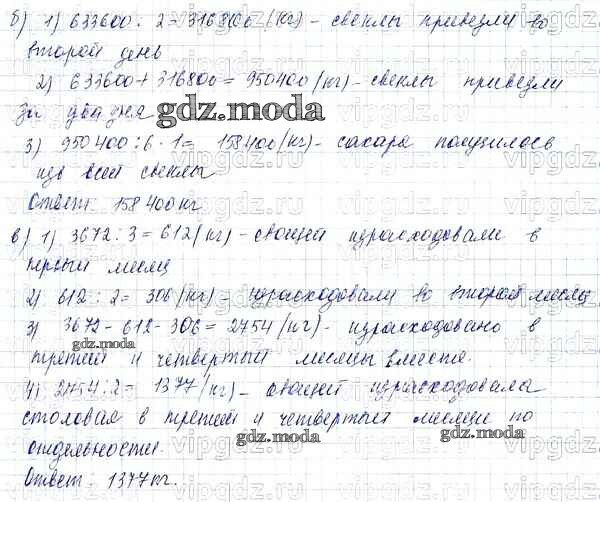 б) 1) 633600 : 2 = 316800 (кг) - свеклы привезли во
второй день
2) 633600 + 316800 = 950400 (кг) - свеклы привезли
за два дня
3) 950400 : 6 · 1 = 158400 (кг) - сахара получилось
из всей свеклы
Ответ: 158400 кг
в) 1) 3672 : 3 = 612 (кг) - овощей израсходовали в
первый месяц
2) 612 : 2 = 306 (кг) - израсходовали во второй месяц
3) 3672 - 612 - 306 = 2754 (кг) - израсходовано в
третий и четвертый месяцы вместе.
4) 2754 : 2 = 1377 (кг) - овощей израсходовала
столовая в третий и четвертый месяцы по
отдельности.
Ответ: 1377 кг.
gdz.moda
gdz.moda
gdz.moda
gdz.moda
vipgdz.ru